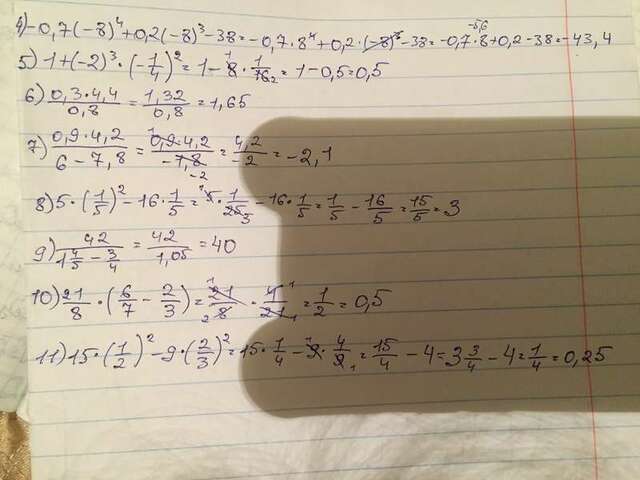 4) -0,7(-8)⁴+0,2(-8)³-38=-0,7·8⁴+0,2·(-8)³-38=-0,7·8+0,2-38=-43,4
-5,6
5) 1+(-2)³·(-1/4)²=1-8·1/16=1-0,5=0,5
6) 0,3·4,4/0,8=1,32/0,8=1,65
7) 0,9·4,2/6-7,8=0,9·4,2/-1,8=4,2/-2=-2,1
8) 5·(1/5)²-16·1/5=5·1/25-16·1/5=1/5-16/5=15/5=3
9) 42/1 4/5-3/4=42/1,05=40
10) 21/8·(6/7-2/3)=21/8·4/21=1/2=0,5
11) 15·(1/2)²-9·(2/3)²=15·1/4-9·4/9=15/4-4=3 3/4-4=1/4=0,25